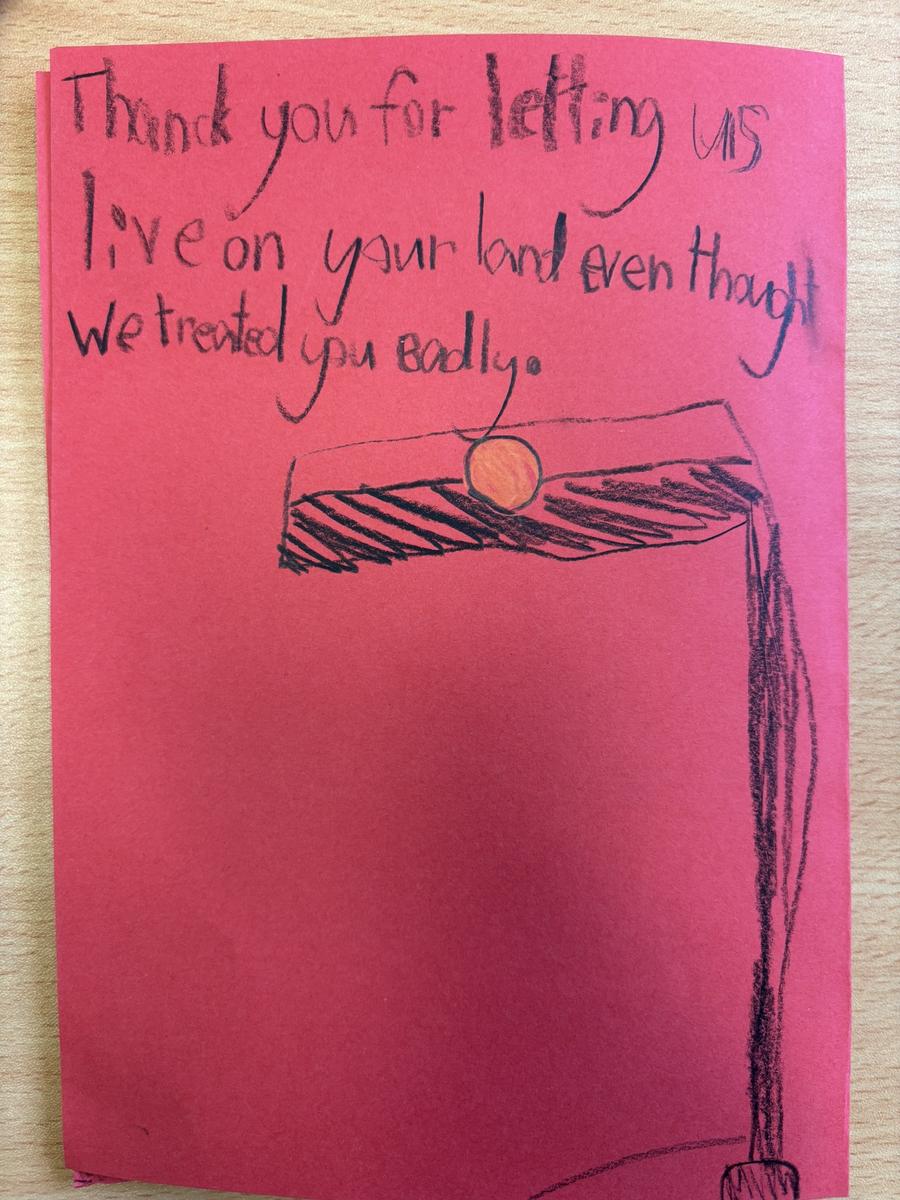 Thank you for letting us
live on your land even thought
we treated you Badly.